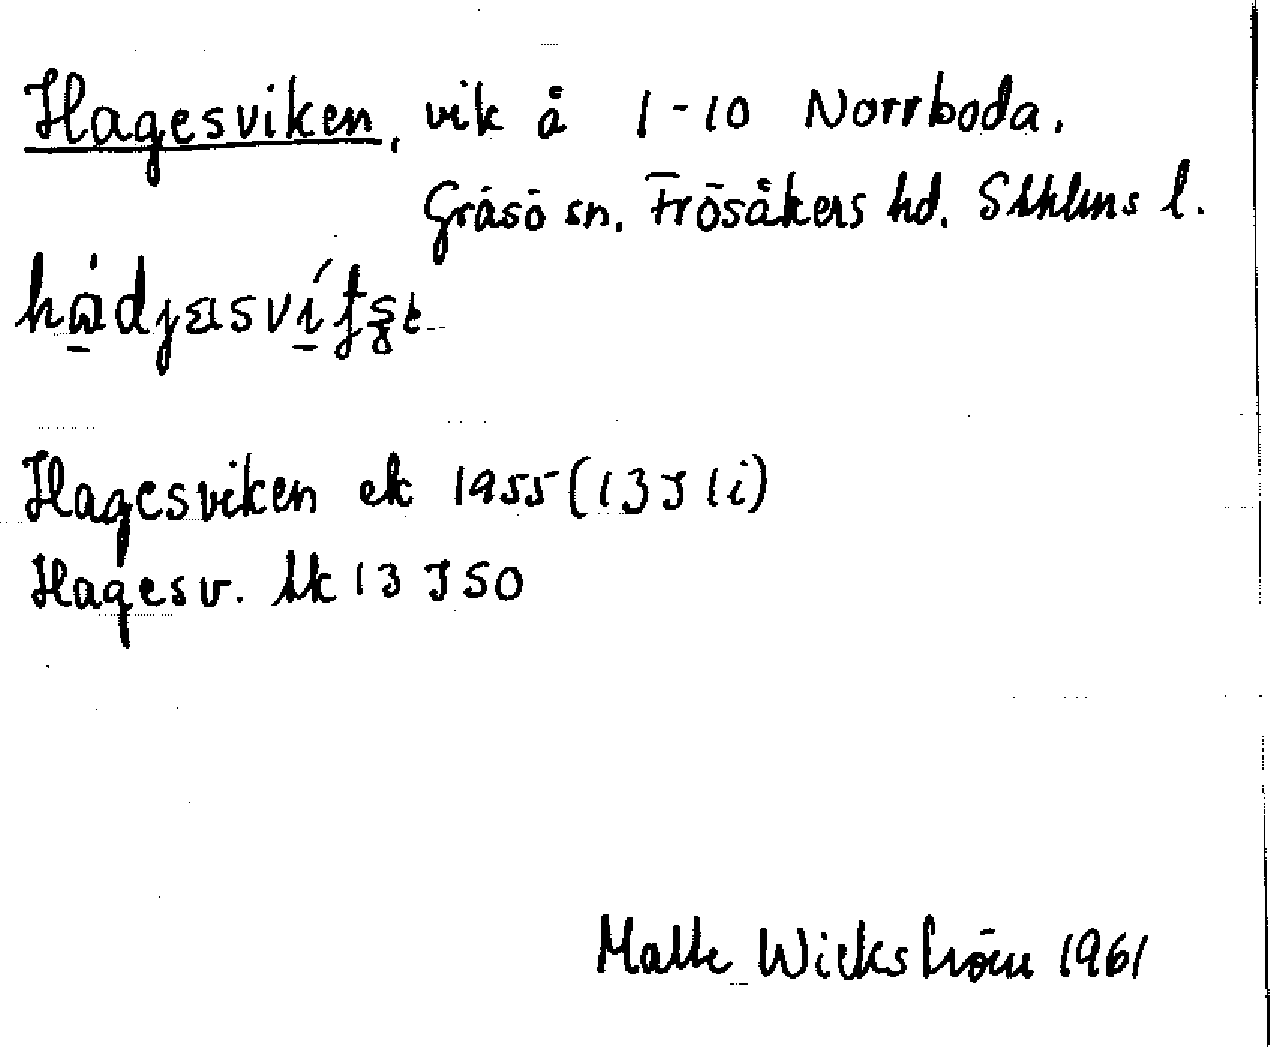 Hagesviken, vik å 1-10 Norrboda.
Gräsö sn. Frösåkers hd. Sthlms l.
Hagesviken ek 1955 (13 J 1i)
Hagesv. sk 13 J SO
Malte Wickström 1961